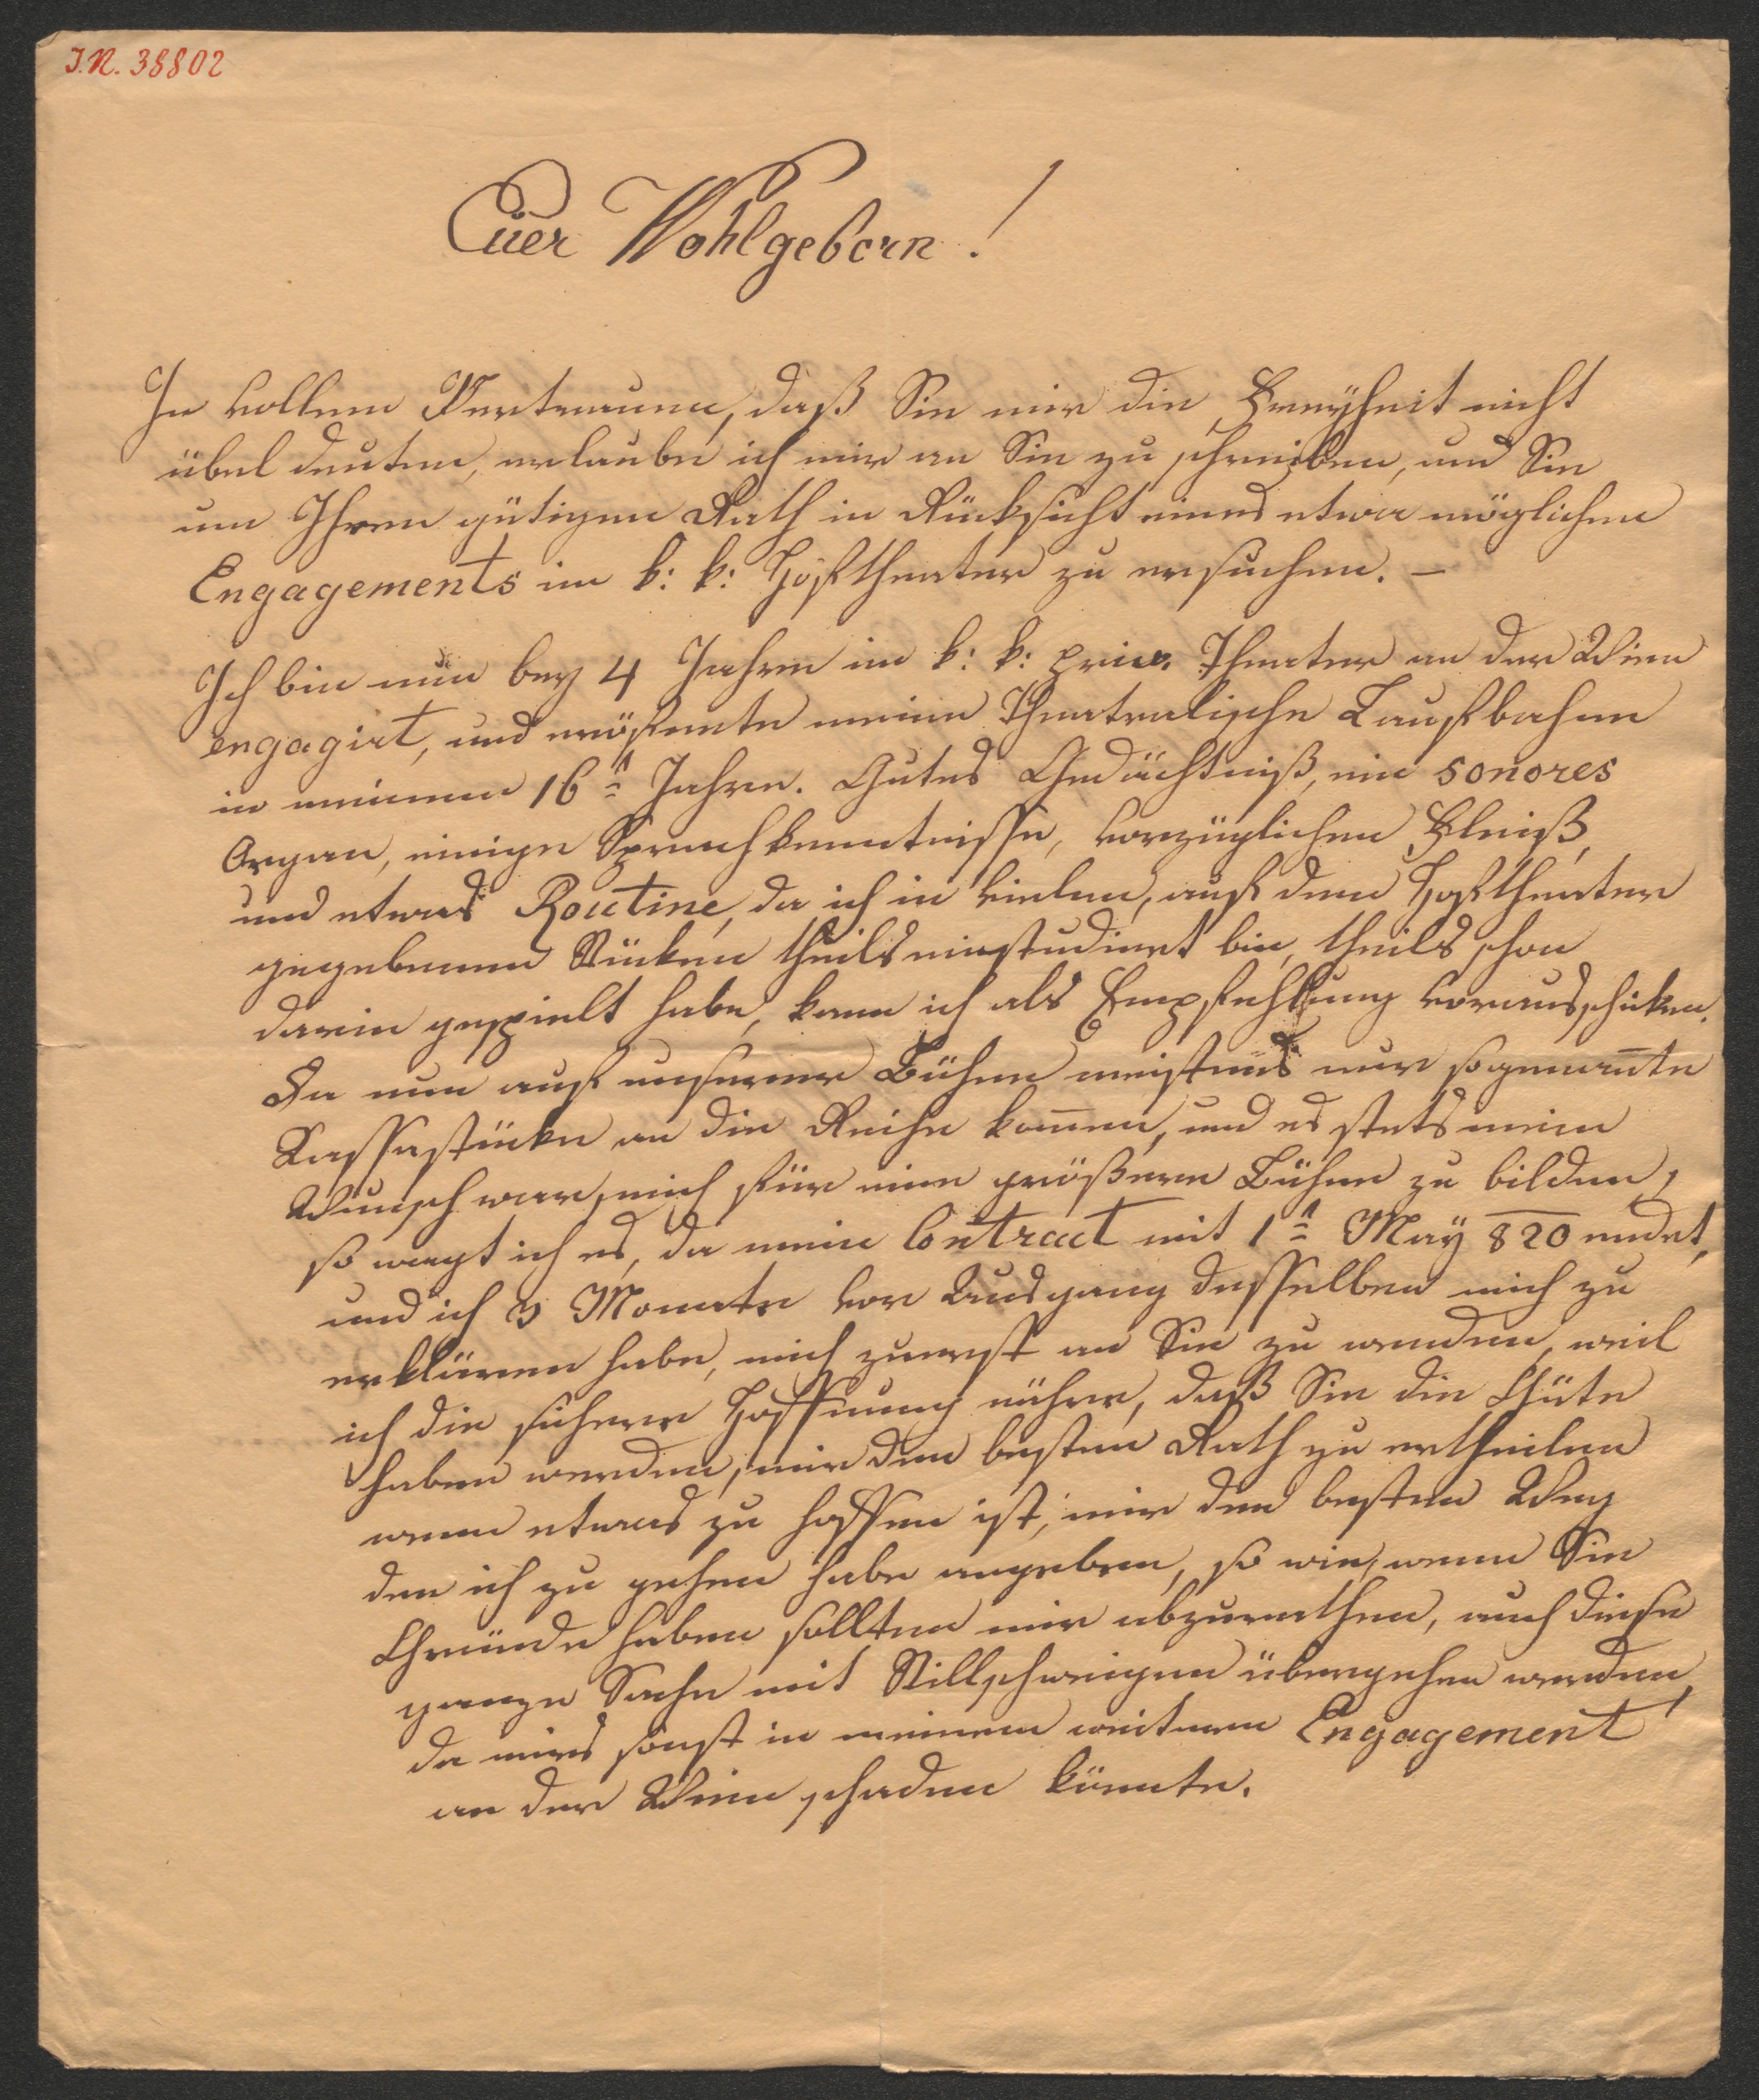 I.N. 38802
Euer Wohlgeborn!
In vollem Vertrauen, daß Sie mir die Freyheit nicht
übel deuten, erlaube ich mir an Sie zu schreiben, und Sie
um Ihren gütigen Rath in Rücksicht eines etwa möglichen
Engagements im k: k: Hoftheater zu ersuchen. —
Ich bin nun bey 4 Jahren im k: k: priv. Theater an der Wien
engagirt, und eröffnete meine Theatralische Laufbahne
in meinem 16n Jahre. Gutes Gedächtniß, ein sonores
Organ, einige Sprachkenntnisse, vorzüglichen Fleiß,
und etwas Routine, da ich in vielen, auf dem Hoftheater
gegebenen Stücken theils einstudiert bin, theils schon
darin gespielt habe, kann ich als Empfehlung vorausschicken.
Da nun auf unserer Bühne meistens nur sogenan̄te
Kassastücke an die Reihe kom̄en, und es stets mein
Wunsch war, mich für eine größere Bühne zu bilden,
so wagt ich es, da mein Contract mit 1n May 820 endet,
und ich 3 Monate vor Ausgang desselben mich zu
erklären habe, mich zuerst an Sie zu wenden, weil
ich die sichere Hoffnung nähre, daß Sie die Güte
haben werden, mir den besten Rath zu ertheilen
wenn etwas zu hoffen ist, mir den besten Weg
den ich zu gehen habe angeben, so wie, wenn Sie
Gründe haben sollten mir abzurathen, auch diese
ganze Sache mit Stillschweigen übergehen werden,
da mirs sonst in meinem weitern Engagement
an der Wien schaden könnte.